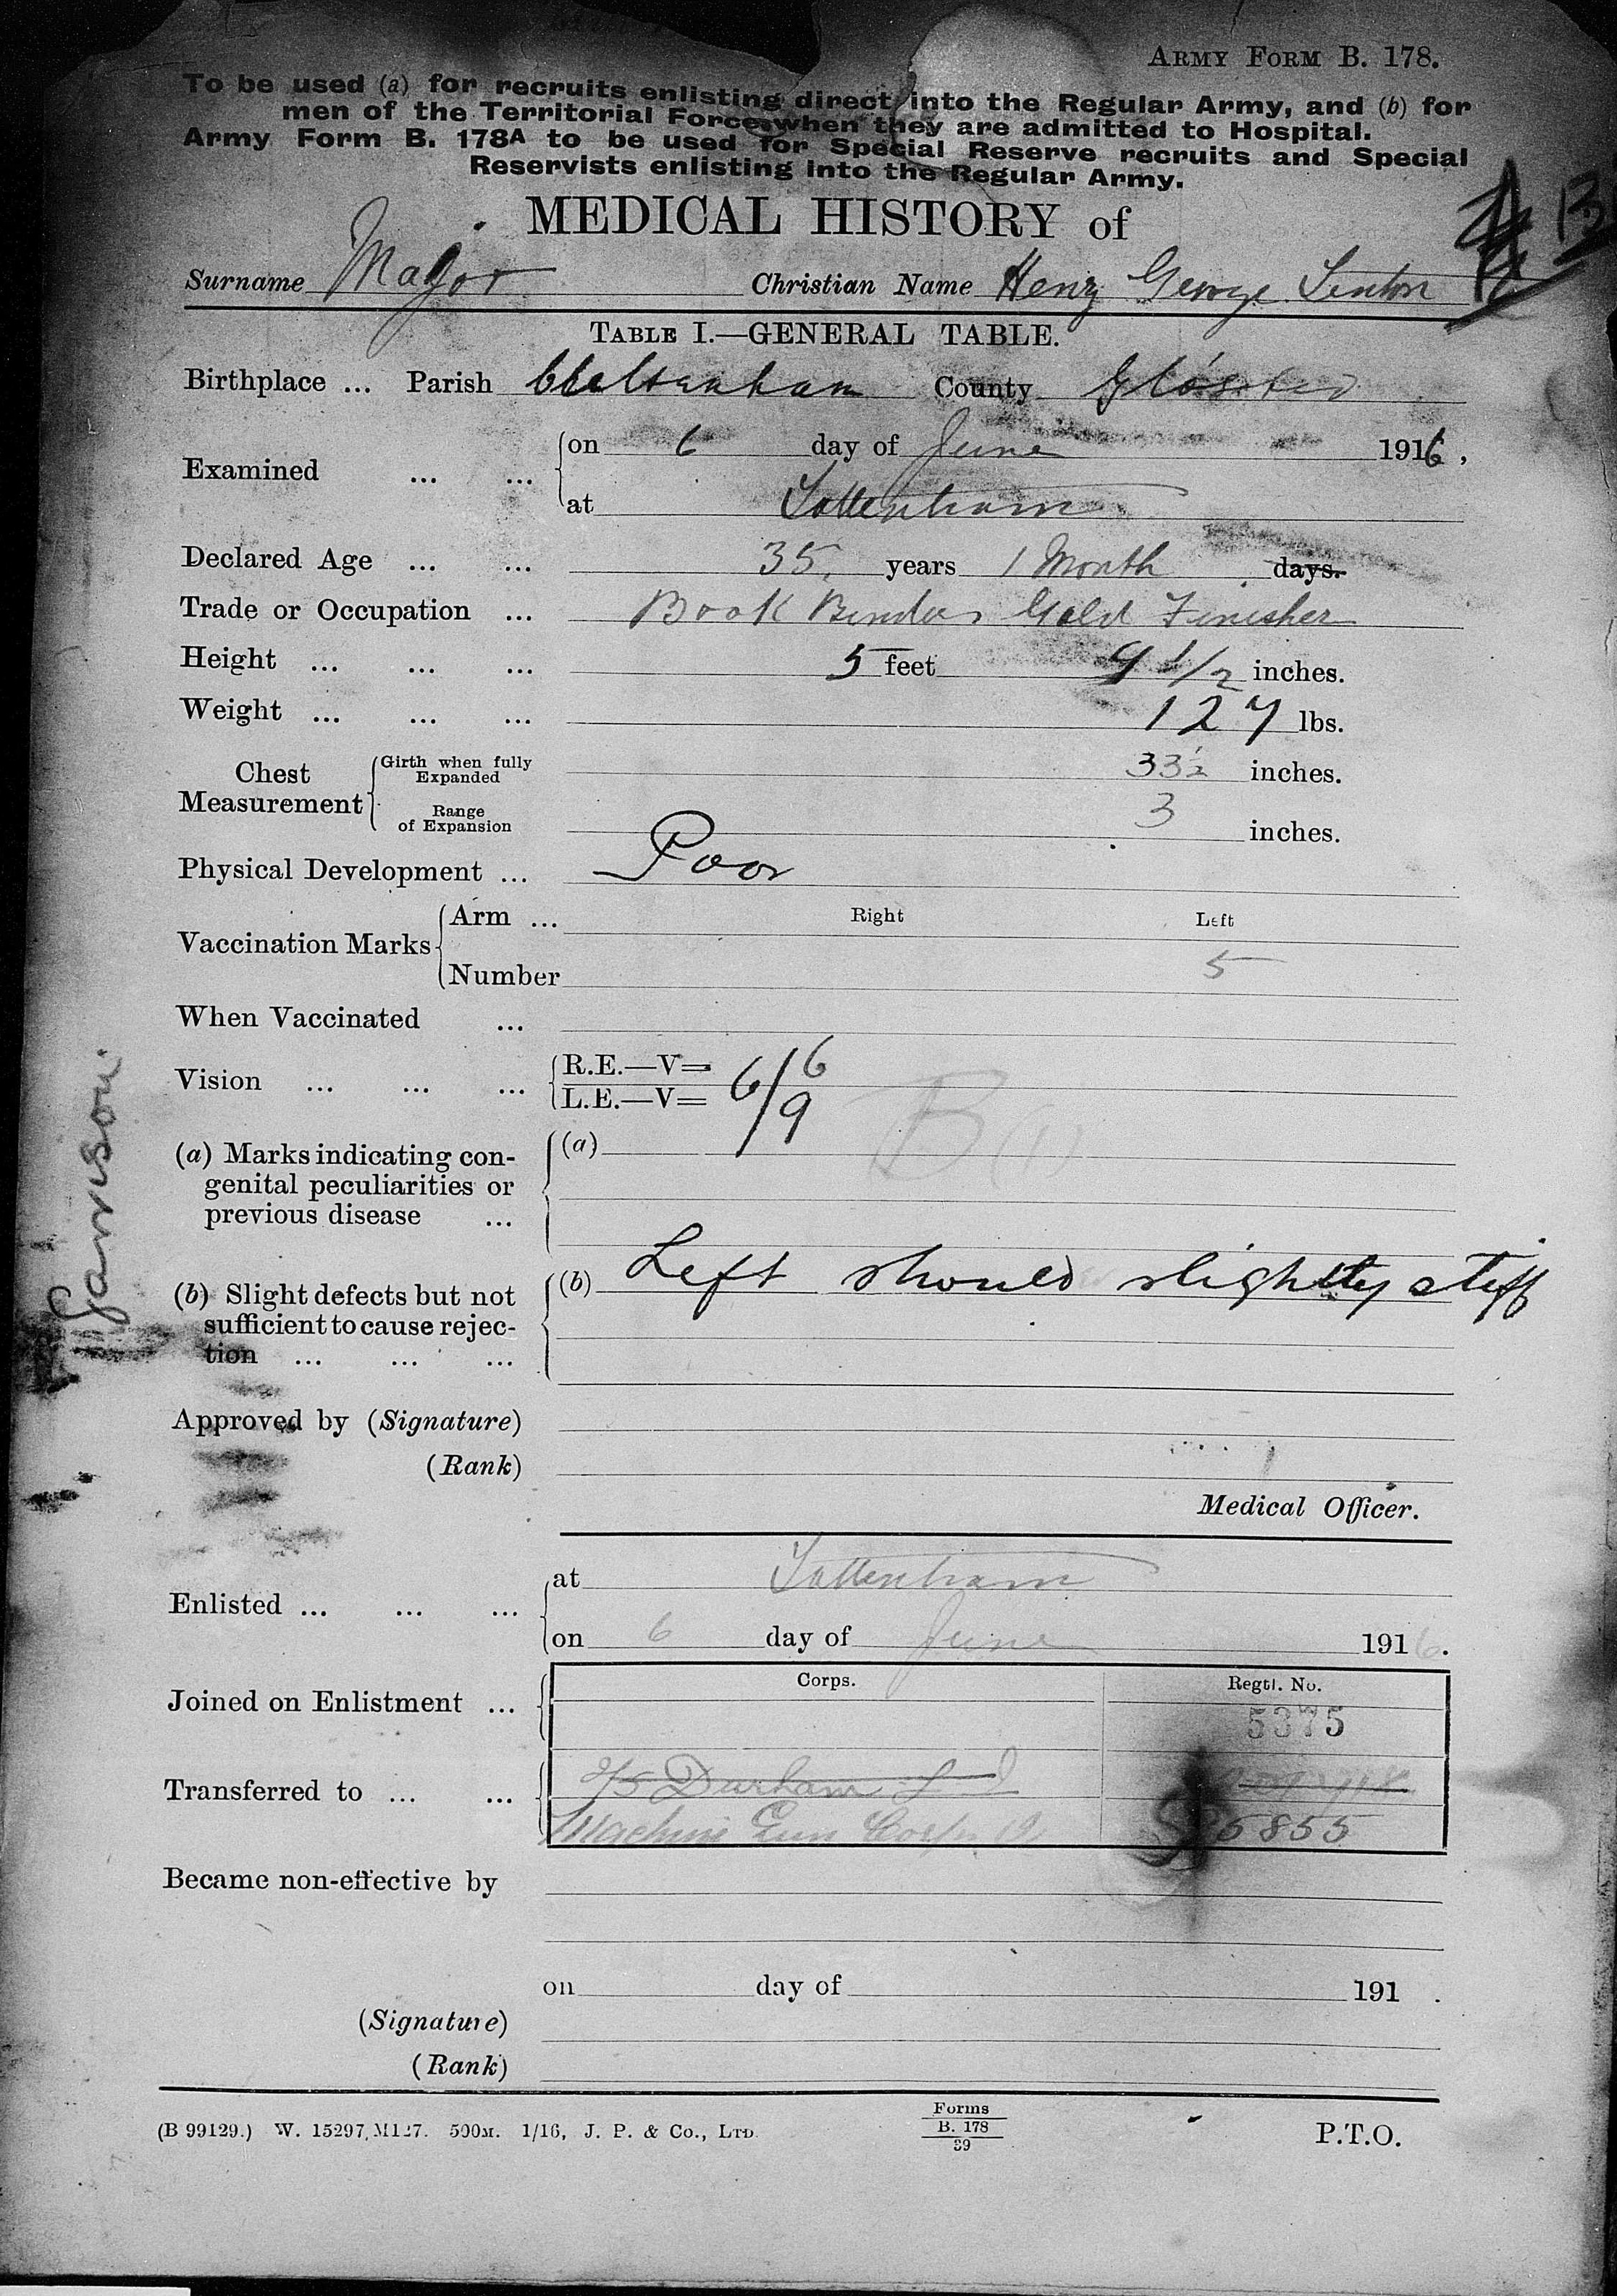 ARMY FORM B. 178.
To be used (a) for recruits enlisting direct into the Regular Army, and (b) for
men of the Territorial Force when they are admitted to Hospital.
Army Form B. 178A to be used for Special Reserve recruits and Special
Reservists enlisting into the Regular Army.
B
MEDICAL HISTORY of
Surname Major Christian Name Henry George
TABLE I.—GENERAL TABLE.
Birthplace ... Parish Cheltenham County Gloster
Examined ... ... on 6 day of June 1916,
at Tottenham
Declared Age ... ... 35 years 1 Month days.
Trade or Occupation ... Book Binder Gold Finisher
Height ... ... ... 5 feet 9 1/2 inches.
Weight ... ... ... 127 lbs.
Chest Measurement Girth when fully Expanded 33½ inches.
Range of Expansion 3 inches.
Physical Development ... Poor
Vaccination Marks Arm ... Right Left
Number 5
When Vaccinated ...
Vision ... ... ... R.E.—V= 6/6
L.E.—V= 6/9
B (1)
(a) Marks indicating con-
genital peculiarities or
previous disease ...
(a)
(b) Slight defects but not
sufficient to cause rejec-
tion ... ... ...
(b) Left should slightly stiff
"Garrison.
Approved by (Signature)
(Rank)
Medical Officer.
Enlisted ... ... ... at Tottenham
on 6 day of June 1916.
Corps. Regtl. No.
Joined on Enlistment ... 5375
Transferred to ... ... 2/5 Durham L I
Machine Gun Corps 5855
Became non-effective by
on day of 191 .
(Signature)
(Rank)
(B 99129.) W. 15297, M127. 500M. 1/16, J. P. & Co., LTD.
Forms
B. 178
39
P.T.O.